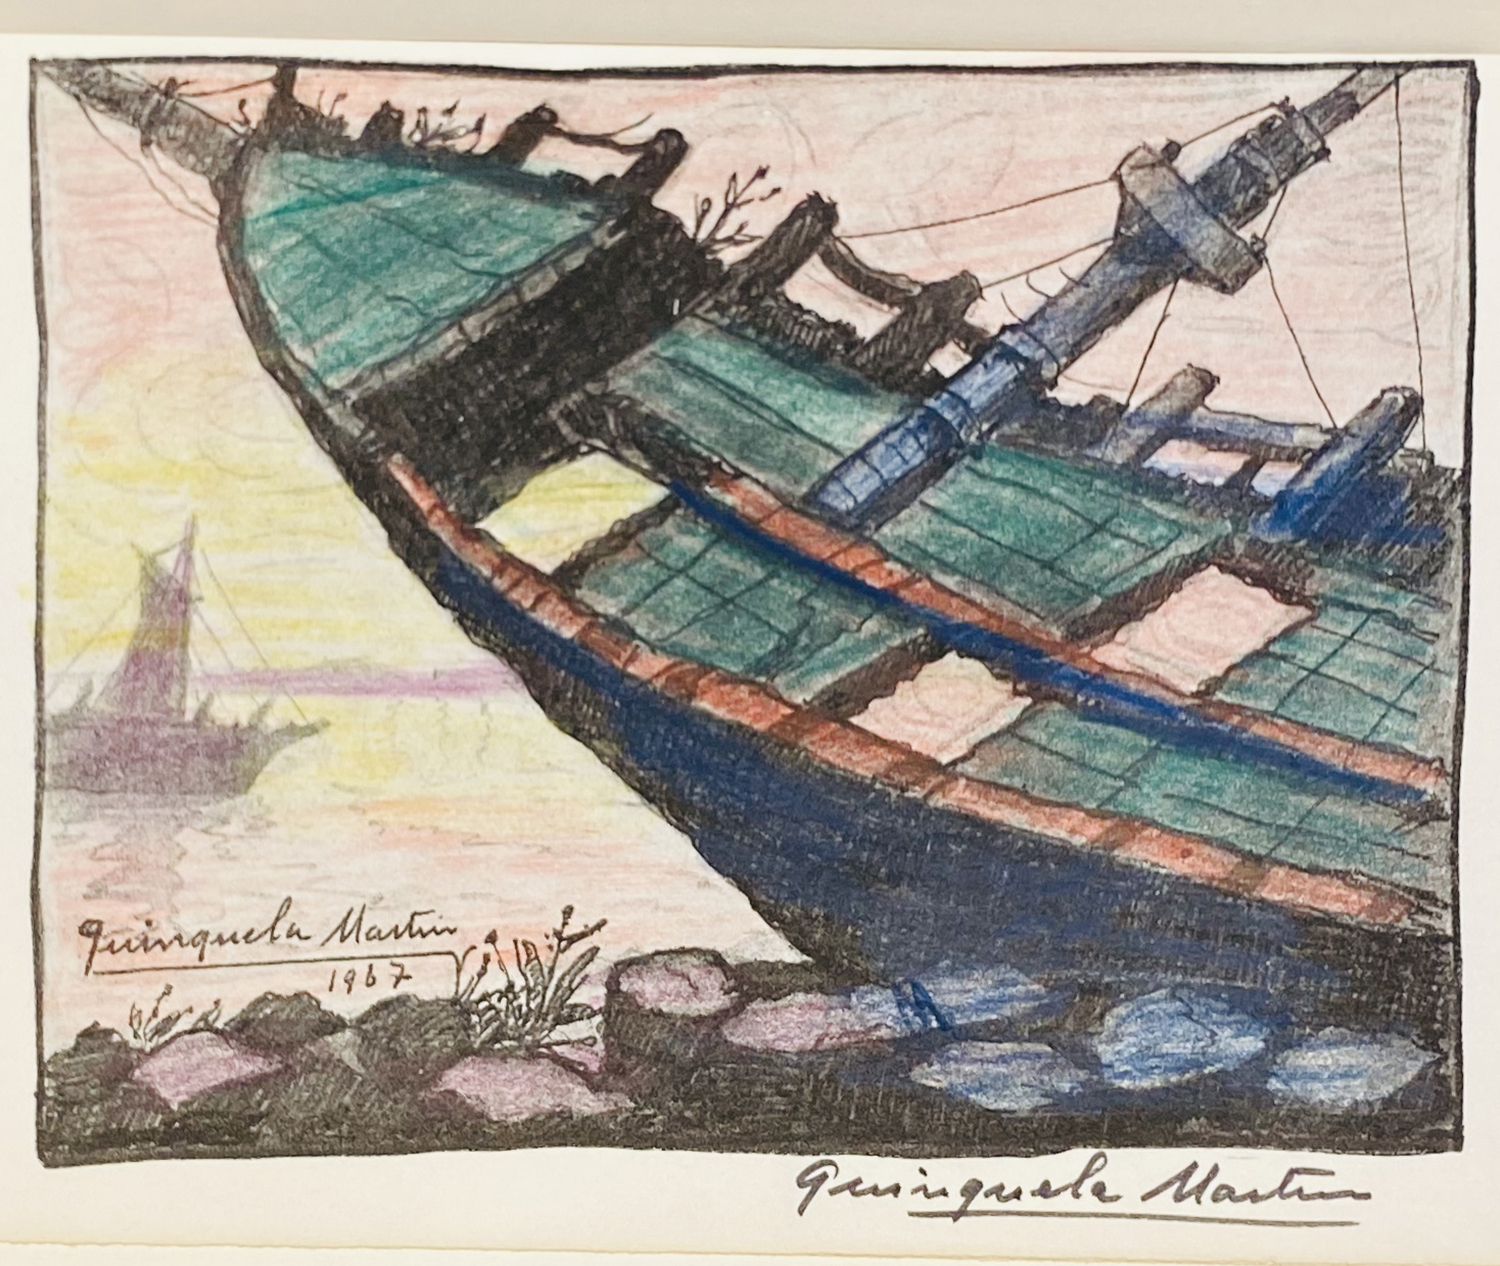 Quinquela Martin
1967
Quinquela Martin